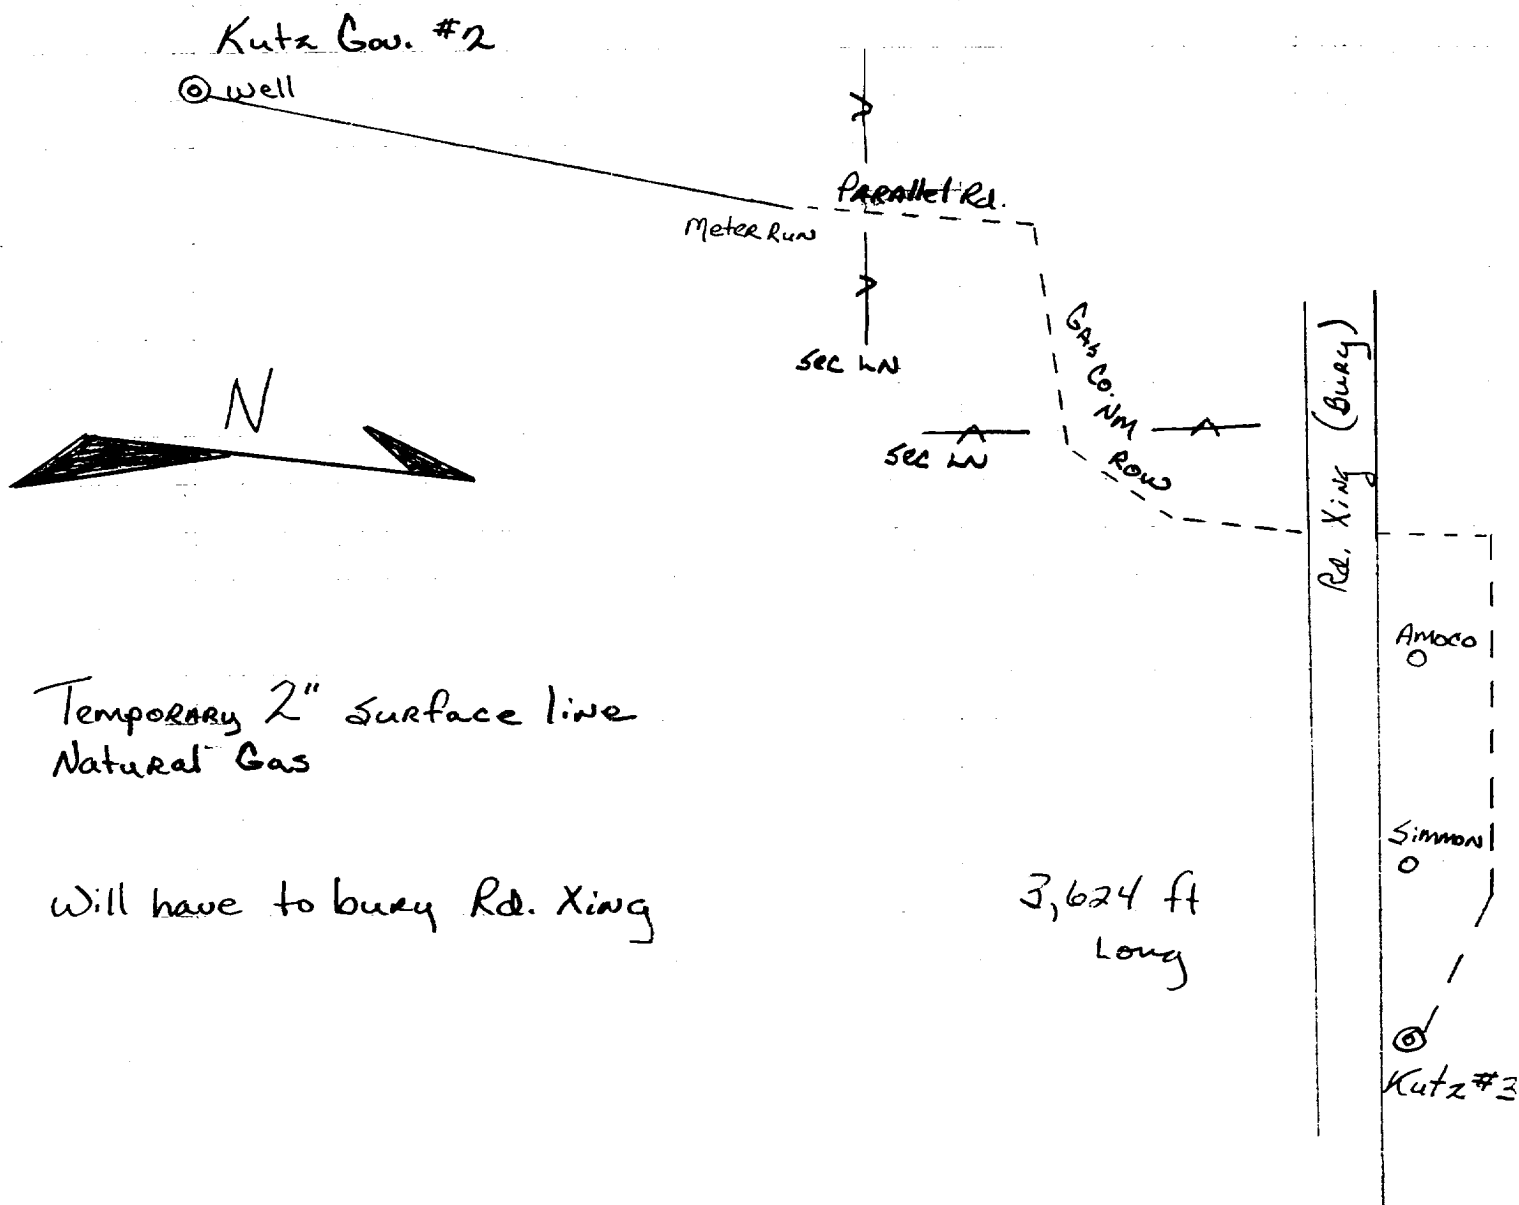 Kutz Gov. #2
well
Parallel Rd.
Meter Run
Sec LN
N
Gas Co. NM
ROW
Sec LN
Rd. Xing (Bury)
Amoco
Temporary 2" Surface line
Natural Gas
Simmon
Will have to bury Rd. Xing
3,624 ft
Long
Kutz #3